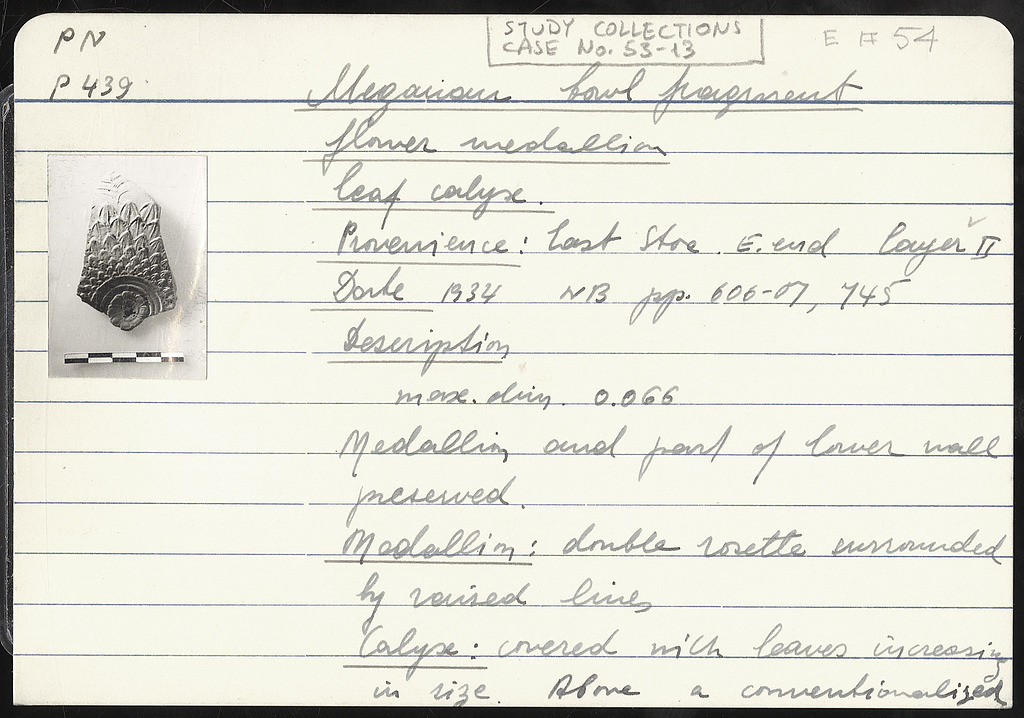 PN
STUDY COLLECTIONS
CASE No. 53-13
E # 54
P 439
Megarian bowl fragment
flower medallion
leaf calyx.
Provenience: East Stoa. E. end layer II
Date 1934 NB pp. 606-07, 745
Description
max. dim. 0.066
Medallion and part of lower wall
preserved.
Medallion: double rosette surrounded
by raised lines
Calyx: covered with leaves increasing
in size. Above a conventionalized